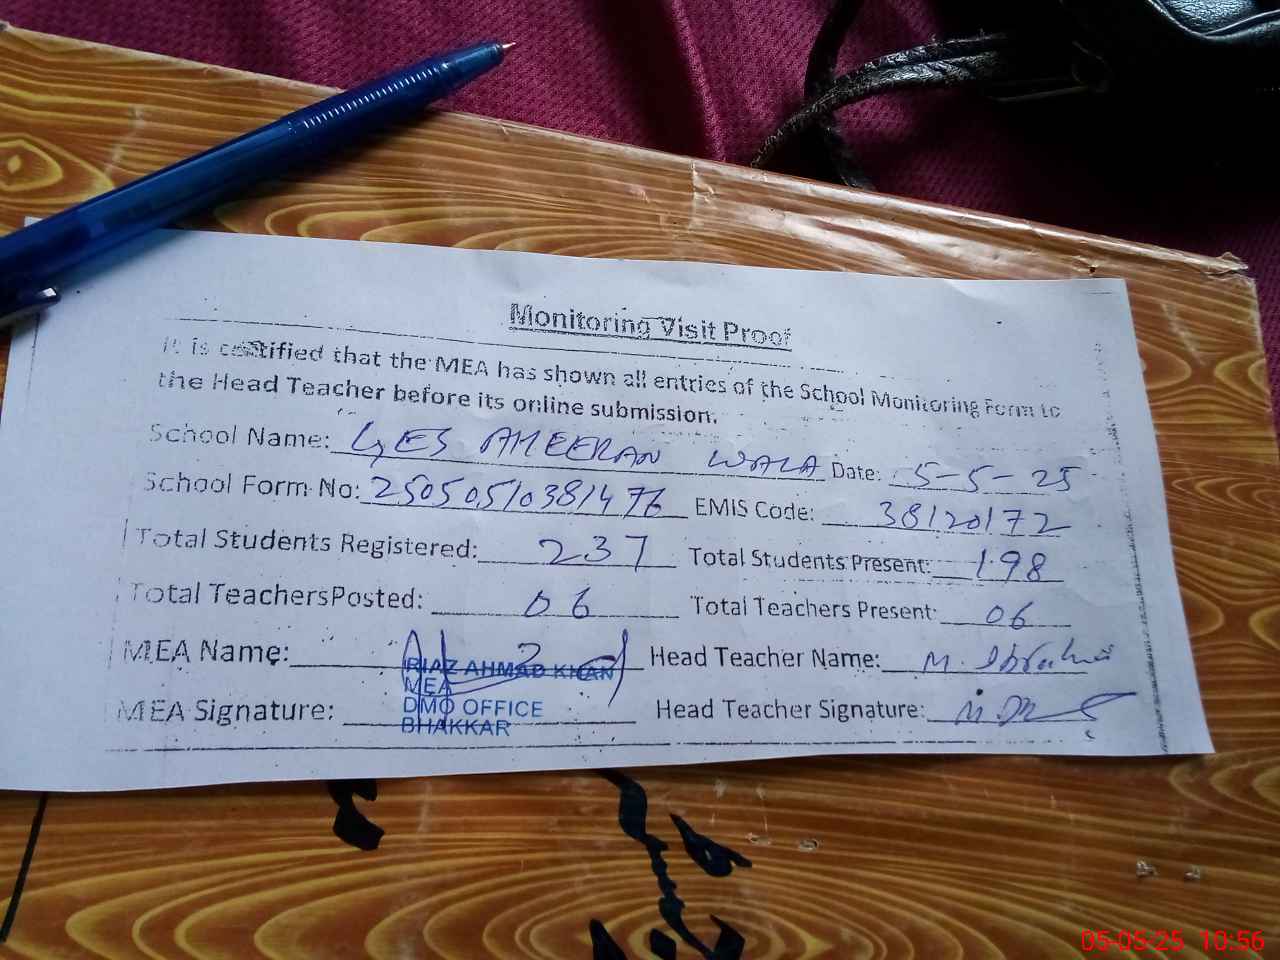 Monitoring Visit Proof
It is certified that the MEA has shown all entries of the School Monitoring Form to
the Head Teacher before its online submission.
School Name: GES AHEERAN WALA Date: 5-5-25
School Form No: 25050510381476 EMIS Code: 38120172
Total Students Registered: 237 Total Students Present: 198
Total TeachersPosted: 06 Total Teachers Present: 06
MEA Name: RIAZ AHMAD KHAN Head Teacher Name: M. Ibrahim
MEA
MEA Signature: DMO OFFICE Head Teacher Signature:
BHAKKAR
05-05-25 10:56